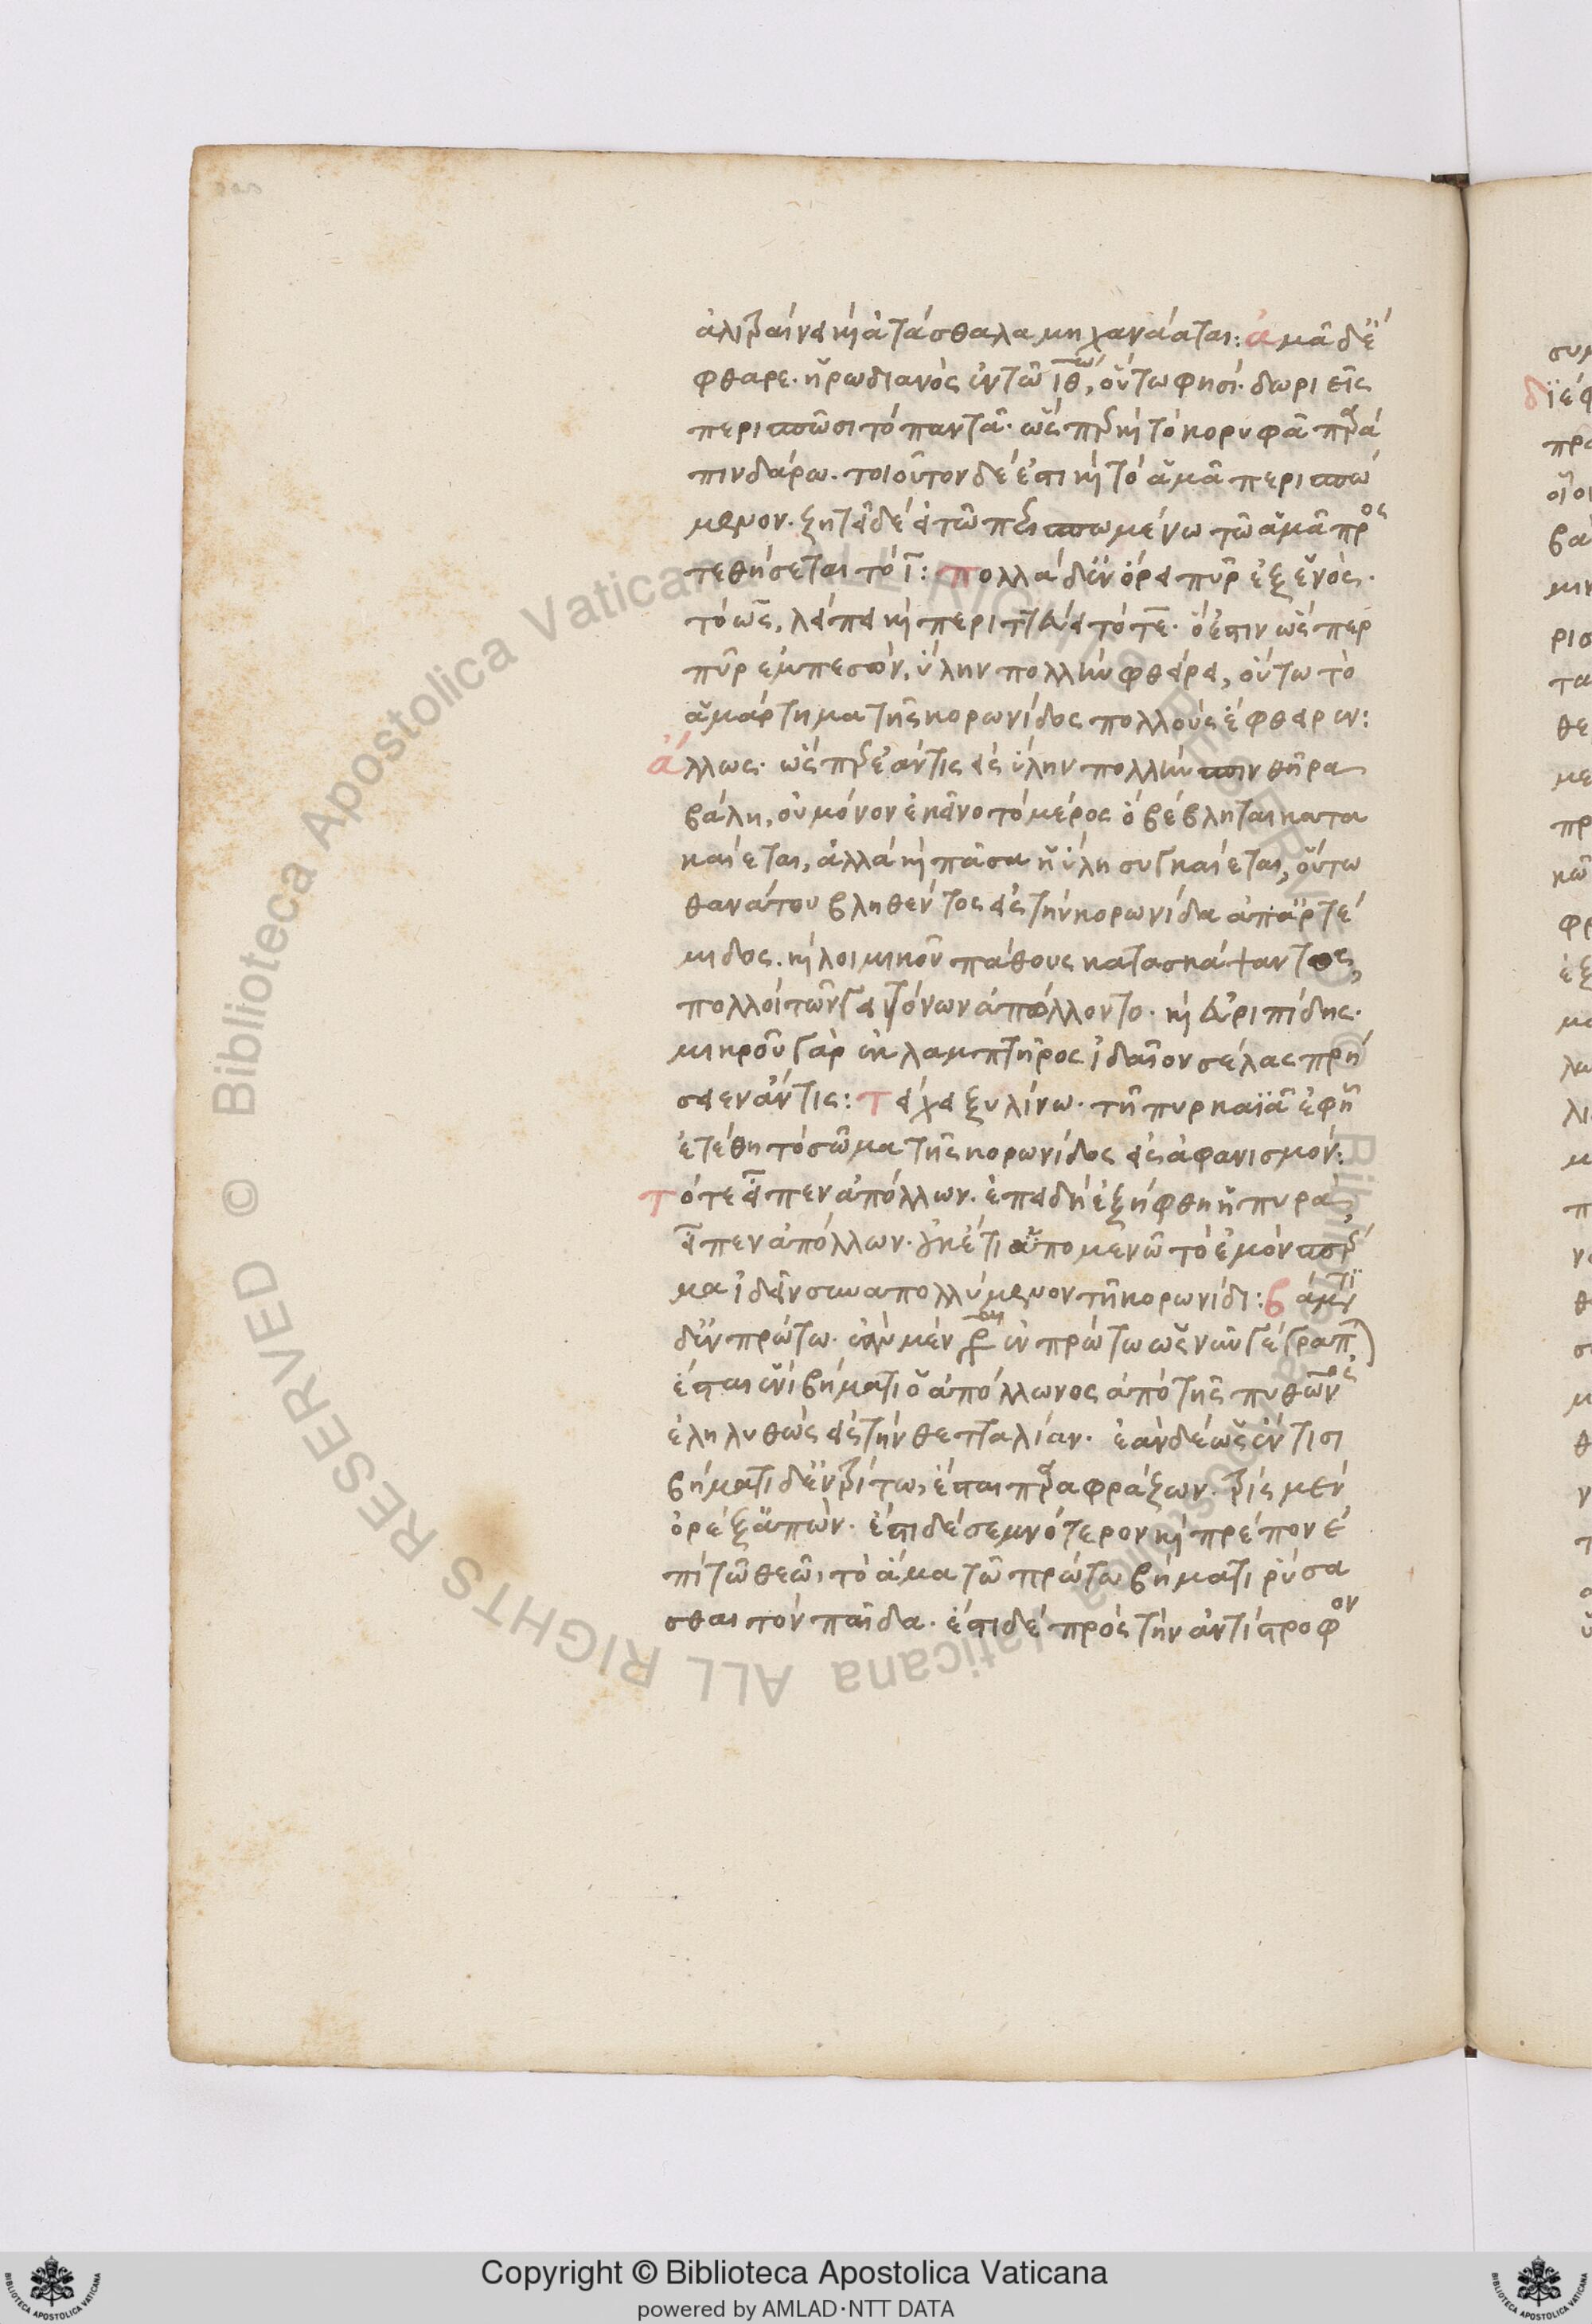 ἀλιτραίνει καὶ ἀτάσθαλα μηχανάαται: ἁμᾶ δ' ἔ
φθαρε. ἡρωδιανὸς ἐν τῶ ιθω, οὕτω φησί. δωριεῖς
περισπῶσι τὸ παντᾶ. ὥσπερ καὶ τὸ κορυφᾶ παρὰ
πινδάρω. τοιοῦτον δέ ἐστι καὶ τὸ ἁμᾶ περισπώ
μενον. ζητεῖ δὲ εἰ τῶ περισπωμένω τῶ ἁμᾶ προσ
τεθήσεται τὸ ϊ: πολλὰ δ' ἐν ὄρει πῦρ ἐξ ἑνός.
τὸ ὡς, λείπει καὶ περιττεύει τὸ τε. ὅ ἐστιν ὥσπερ
πῦρ ἐμπεσὸν, ὕλην πολλὴν φθείρει, οὕτω τὸ
ἁμάρτημα τῆς κορωνίδος πολλοὺς ἔφθειρεν:
ἄλλως. ὥσπερ ἐάν τις εἰς ὕλην πολλὴν σπινθῆρα
βάλη, οὐ μόνον ἐκεῖνο τὸ μέρος ὃ βέβληται κατα
καίεται, ἀλλὰ καὶ πᾶσα ἡ ὕλη συγκαίεται, οὕτω
θανάτου βληθέντος εἰς τὴν κορωνίδα ἀπ' ἀρτέ
μιδος. καὶ λοιμικοῦ πάθους κατασκάψαντος,
πολλοὶ τῶν γειτόνων ἀπόλλοντο. καὶ εὐριπίδης.
μικροῦ γὰρ ἐκ λαμπτῆρος ἰδαῖον σέλας πρή
σειεν ἄν τις: τείχει ξυλίνω. τῆ πυρκαϊᾶ ἐφ' ἧ
ἐτέθη τὸ σῶμα τῆς κορωνίδος εἰς ἀφανισμόν:
τότε εἶπεν ἀπόλλων. ἐπειδὴ ἐξήφθη ἡ πυρὰ,
εἶπεν ἀπόλλων. οὐκέτι ὑπομενῶ τὸ ἐμὸν σπέρ
μα ἰδεῖν συναπολλύμενον τῆ κορωνίδι: βάματι
δ' ἐν πρώτω. ἐὰν μὲν οὖν ἐν πρώτω ὡς νῦν γέγραπται
ἔσται ἑνὶ βήματι ὁ ἀπόλλωνος ἀπὸ τῆς πυθῶνος
ἐληλυθὼς εἰς τὴν θετταλίαν. ἐὰν δὲ ὡς ἔν τισι
βήματι δ' ἐν τρίτω, ἔσται παραφράζων. τρὶς μὲν
ὀρέξατ' ἰών. ἔστι δὲ σεμνότερον καὶ πρέπον ἐ
πὶ τῶ θεῶ, τὸ ἅμα τῶ πρώτω βήματι ῥύσα
σθαι τὸν παῖδα. ἔστι δὲ πρὸς τὴν ἀντίστροφον